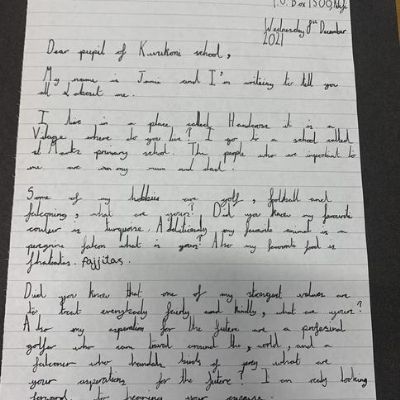 P.O Box 1500,
Wednesday 8st December
2021
Dear pupil of school,
My name is Jamie and I'm writing to tell you
all about me.
I live in a place called it is a
Village where do you live? I go to a school called
st Marks primary school. The people who are important to
me are my mum and dad.
Some of my hobbies are golf, football and
falconing, what are yours? Did you know my favourite
coulour is turquoise. Additionally my favourite animal is a
peregrine falcon what is yours? Also my favourite food is
fajjitas.
Did you know that one of my strongest values are
to treat everybody fairly and kindly, what are yours?
Also my asperation for the future are a profesional
golfer who can travel around the world, and a
falconer who handals birds of prey what are
your asperations for the future? I am realy looking
forward to hearing your